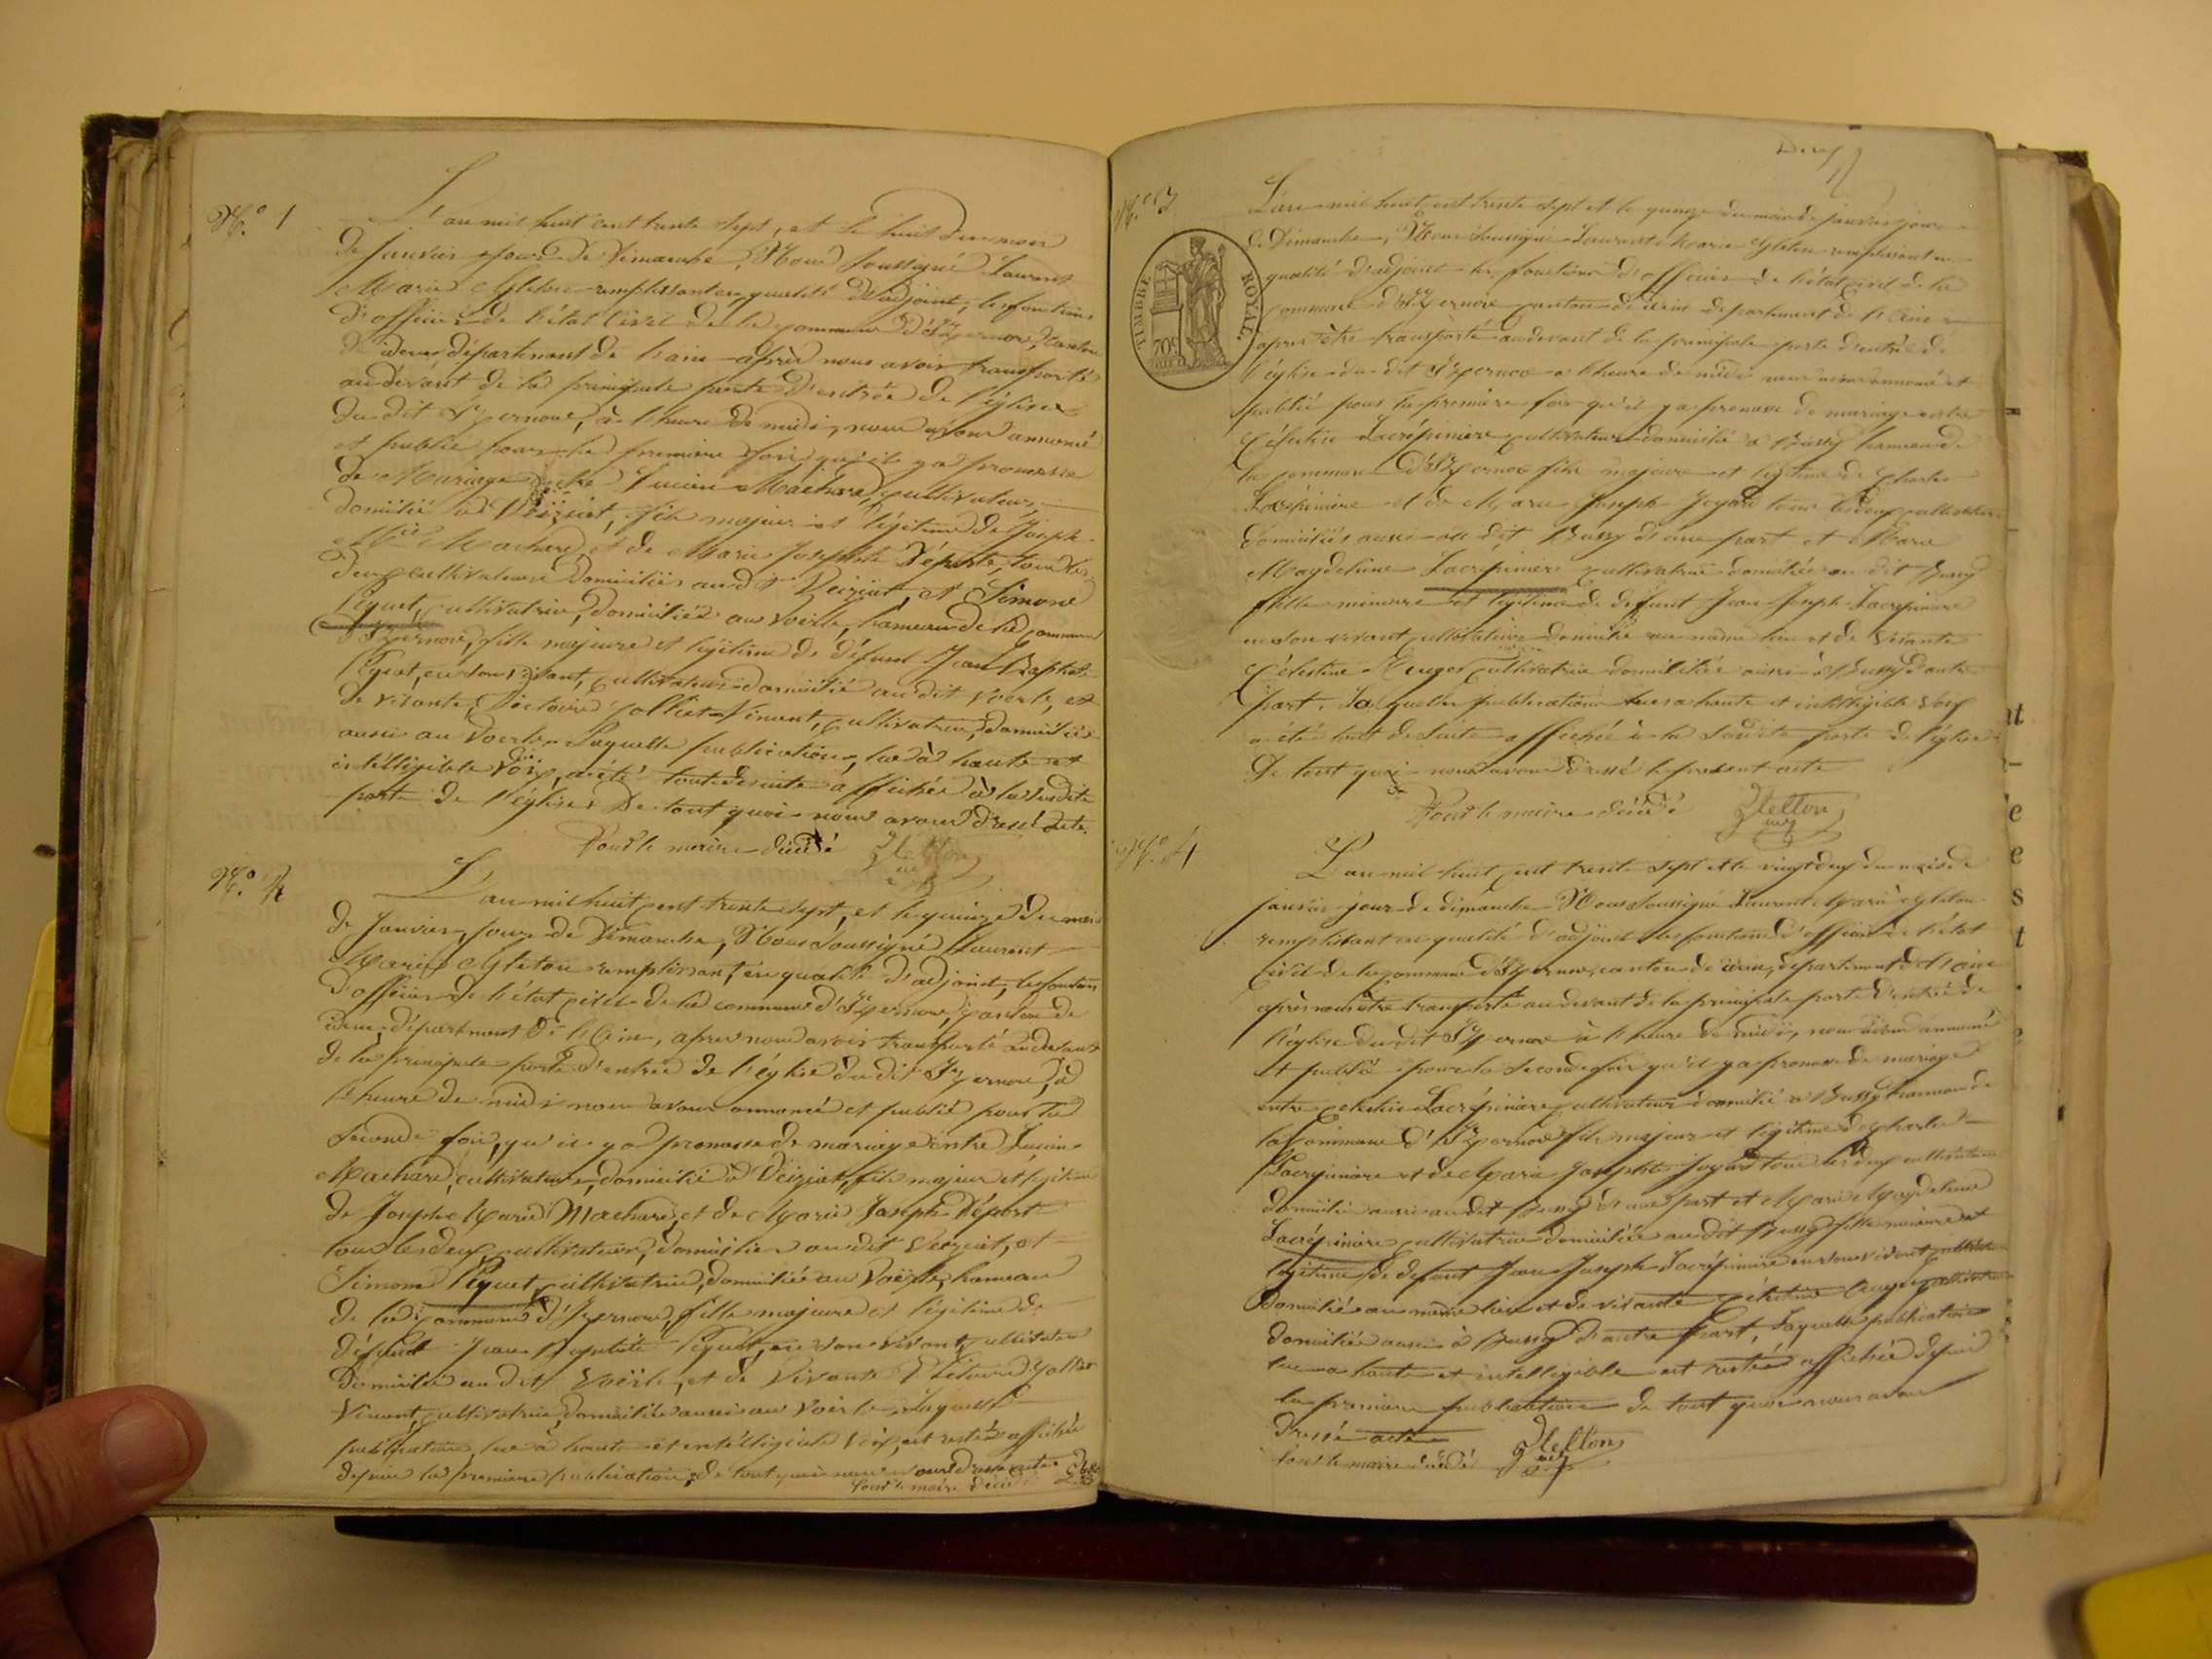 N.° 1
L'an mil huit cent trente sept, et le huit du mois
de janvier jour de Dimanche, Nous soussigné Laurent
Marie Gleton remplissant en qualité d'adjoint, les fonctions
d'officier de l'état civil de la commune d'Izernore, canton
de idem, département de l'ain après nous avoir transporté
audevant de la principale porte d'entrée de l'église
du dit Izernore, à l'heure de midi, nous avons annoncé
et publié pour la première fois, qu'il y a promesse
de Mariage entre Lucien Machard, cultivateur,
domicilié à Veiziat, fils majeur et légitime de Joseph
Mie Machard, et de Marie Josephte Déporte, tous les
deux cultivateurs domiciliés audit Veiziat, et Simone
Péquet, cultivatrice, domiciliée au Voërle, hameau de la commune
d'Izernore, fille majeure et légitime de défunt Jean Baptiste
Péquet, en son vivant, cultivateur domicilié audit Voerle, et
de vivante, Victoire Jolliet Vincent, cultivatrice, domiciliée
aussi au Voerle. Laquelle publication, lue à haute et
intelligible voix, a été tout de suite affichée à la susdite
porte de l'église. De tout quoi nous avons dressé acte.
Pour le maire décédé Gletton
N.° 2
L'an mil huit cent trente sept, et le quinze du mois
de Janvier, jour de Dimanche, Nous Soussigné Laurent
Marie Gleton remplissant, en qualité d'adjoint, les fonctions
d'officier de l'état civil de la commune d'Izernore, canton de
idem, département de l'Ain, après nous avoir transporté audevant
de la principale porte d'entrée de l'église du dit Izernore, à
l'heure de midi nous avons annoncé et publié pour la
seconde fois, qu'il y a promesse de mariage entre Lucien
Machard, cultivateur, domicilié à Veiziat, fils majeur et légitime
de Joseph Marie Machard, et de Marie Joseph Déport
tous les deux cultivateurs, domiciliés audit Veiziat, et
Simone Péquet, cultivatrice, domiciliée au Voërle, hameau
de la commune d'Izernore, fille majeure et légitime de
défunt Jean Baptiste Péquet, en son vivant, cultivateur
Domicilié audit Voërle, et de Vivante Victoire Jolliet
Vincent, cultivatrice, domiciliée aussi au Voërle. Laquelle
publication, lue à haute et intelligible voix, est restée affichée
depuis la première publication, de tout quoi nous avons dressé acte
Pour le maire décédé
Deux
N.° 3
TIMBRE ROYAL.
L'an mil huit cent trente sept et le quinze du mois de janvier jour
de Dimanche, Nous soussigné Laurent Marie Gleton remplissant en
qualité d'adjoint les fonctions d'officier de l'état civil de la
commune d'Izernore canton de idem département de l'Ain
après être transporté audevant de la principale porte d'entrée de
l'église du dit Izernore à l'heure de midi nous avons annoncé et
publié pour la première fois qu'il y a promesse de mariage entre
Lacrépinière cultivateur domicilié à Bussy hameau de
la commune d'Izernore fils majeur et légitime de Charles
Lacrépinière et de Marie Joseph Joyard tous les deux cultivateurs
domiciliés aussi au dit Bussy d'une part et Marie
Magdeleine Lacrépinière cultivatrice domiciliée au dit Bussy
fille mineure et légitime de défunt Jean Joseph Lacrépinière
en son vivant cultivateur domicilié au même lieu et de vivante
Célestine cultivatrice domiciliée aussi à Bussy d'autre
part. Laquelle publication lue à haute et intelligible voix
a été tout de suite affichée à la susdite porte de l'église
De tout quoi nous avons dressé le présent acte
Pour le maire décédé Gletton
N.° 4
L'an mil huit cent trente sept et le vingt deux du mois de
janvier jour de dimanche Nous soussigné Laurent Marie Gleton
remplissant en qualité d'adjoint les fonctions d'officier de l'état
civil de la commune d'Izernore, canton de idem, département de l'Ain
après nous être transporté audevant de la principale porte d'entrée de
l'église du dit Izernore à l'heure de midi, nous avons annoncé
et publié pour la seconde fois qu'il y a promesse de mariage
entre Lacrépinière cultivateur domicilié à Bussy hameau de
la Commune d'Izernore fils majeur et légitime de Charles
Lacrépinière et de Marie Josephte Joyard tous les deux cultivateurs
domiciliés aussi au dit Bussy d'une part et Marie Magdeleine
Lacrépinière cultivatrice domiciliée au dit Bussy fille mineure et
légitime de défunt Jean Joseph Lacrépinière en son vivant cultivateur
Domicilié au même lieu et de vivante Célestine cultivatrice
domiciliée aussi à Bussy d'autre part, Laquelle publication
lue à haute et intelligible est restée affichée depuis
la première publication de tout quoi nous avons
Dressé acte
Pour le maire décédé Gletton